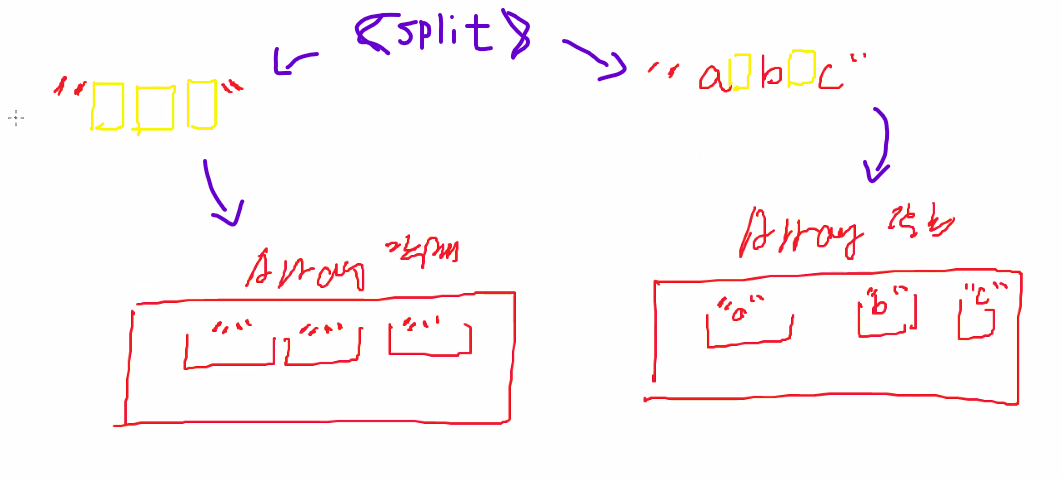 <split>
" "
"a b c"
Array
Array
"" "" ""
"a" "b" "c"